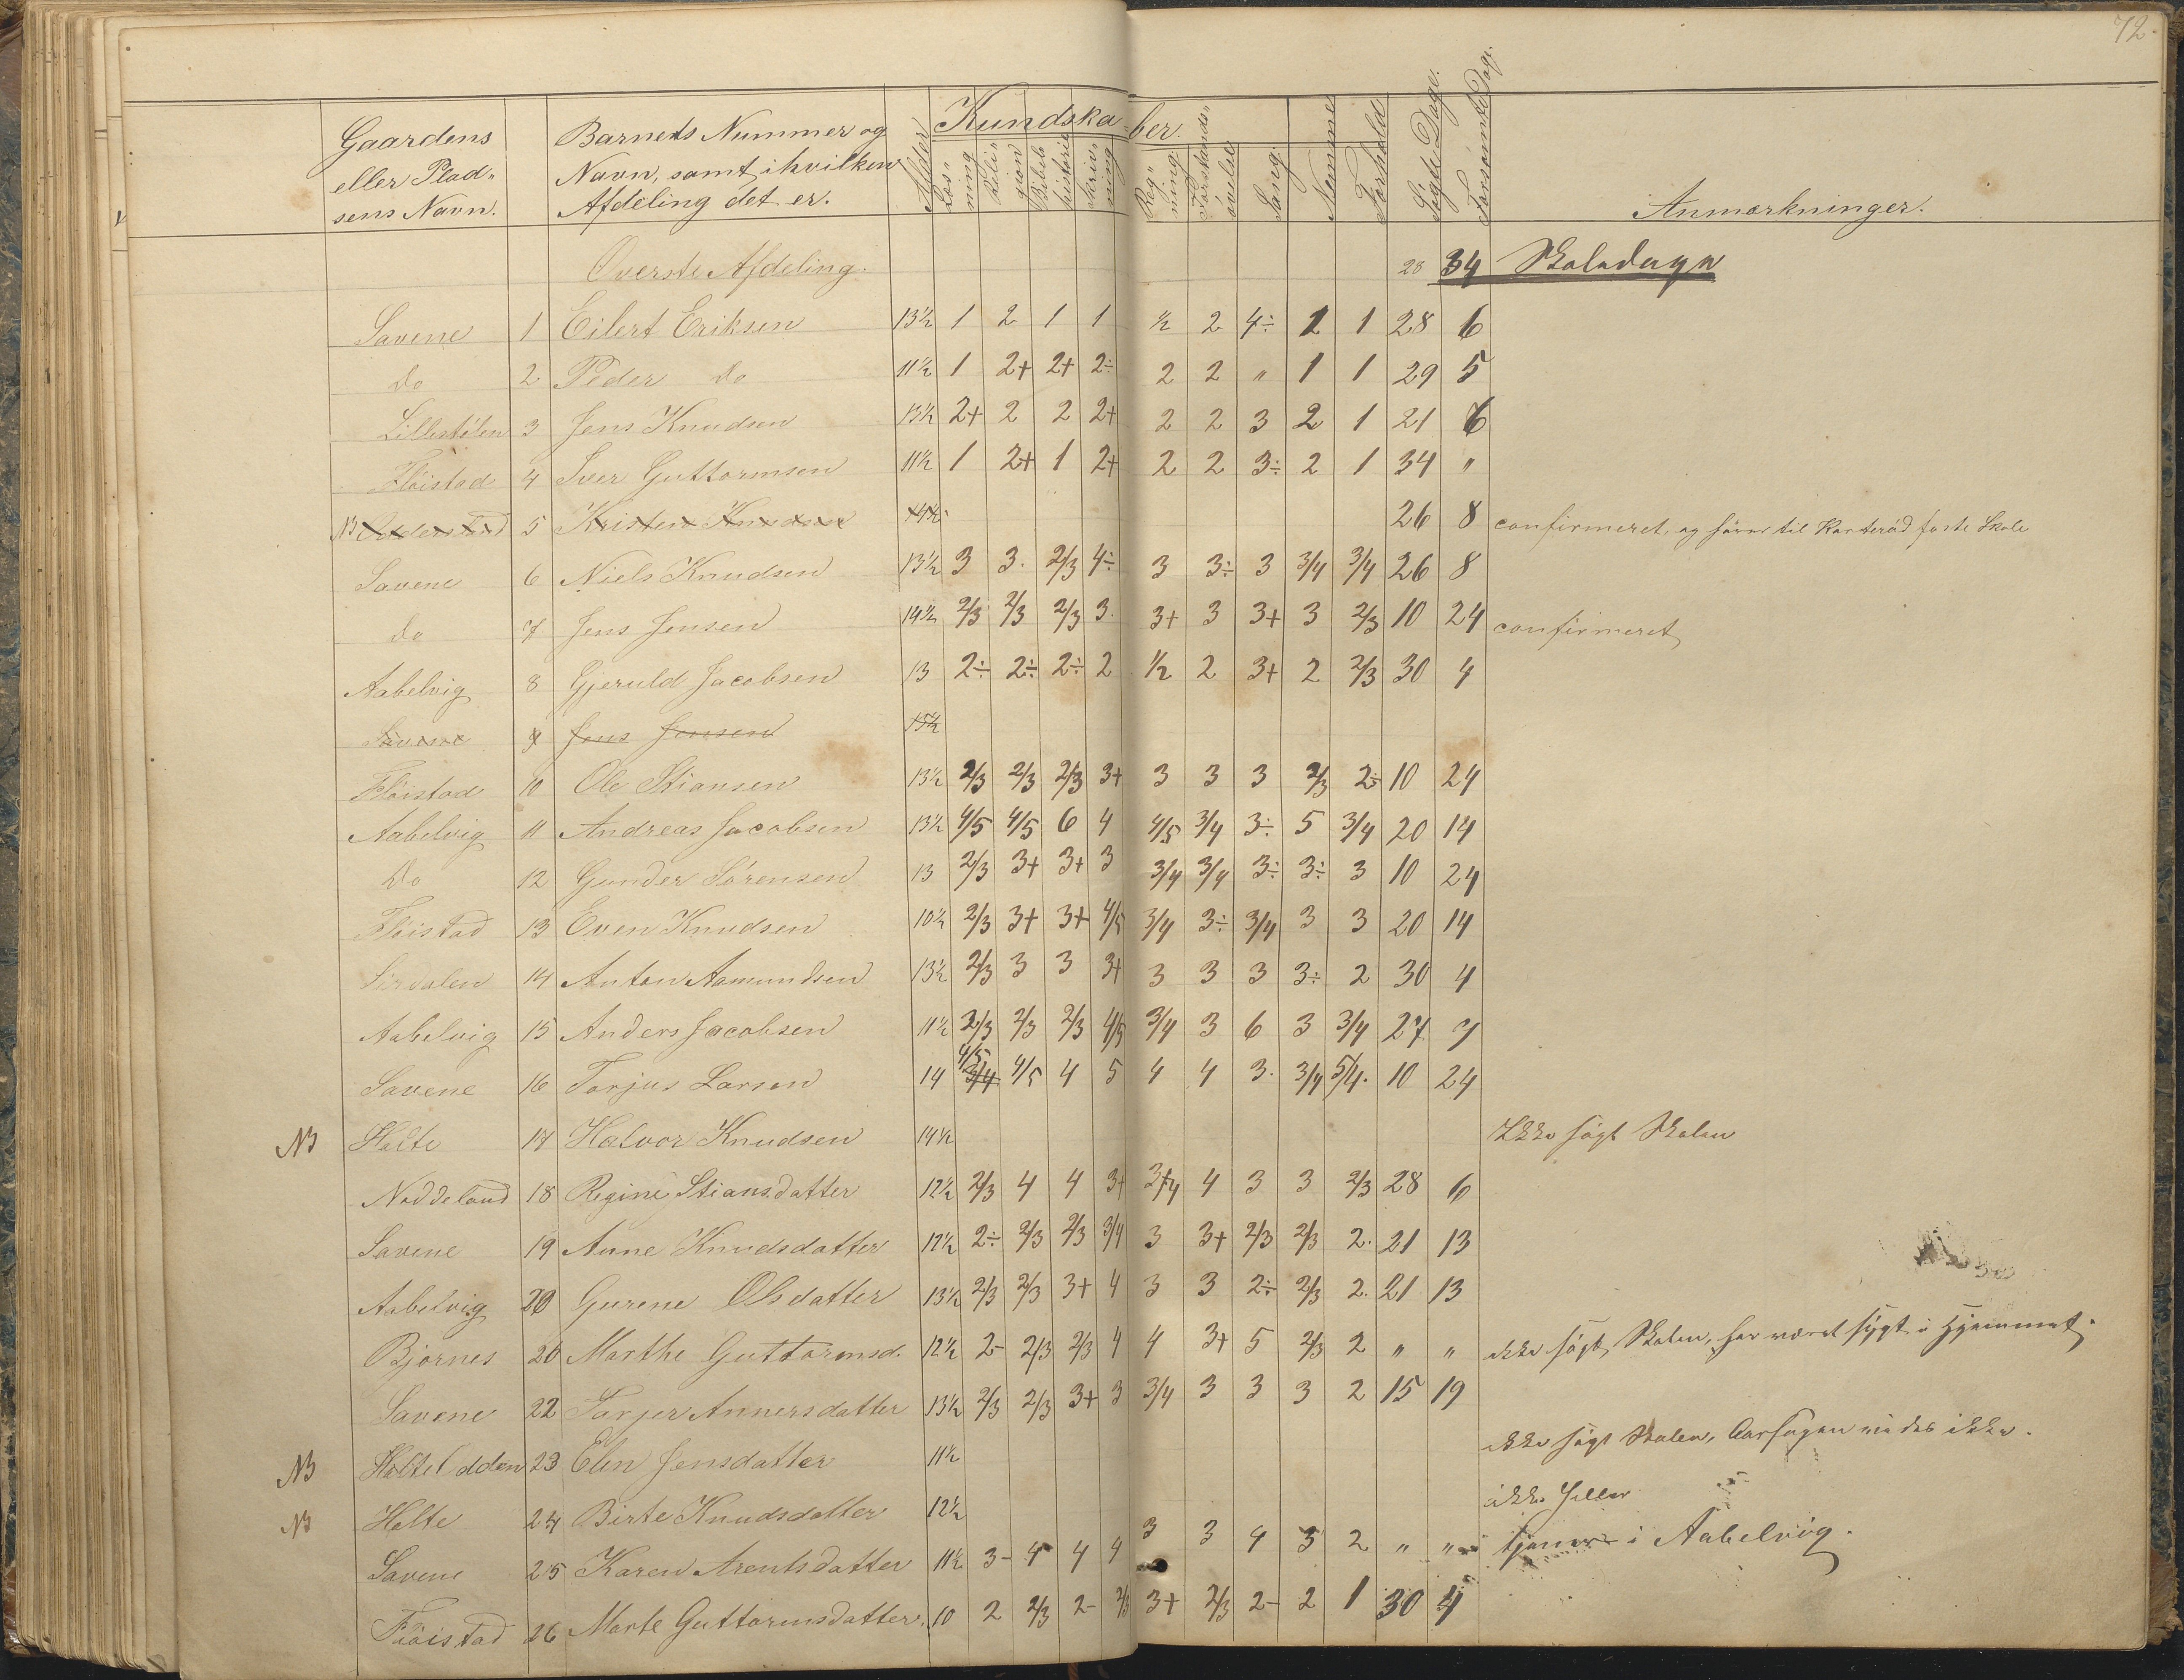 72.
Gaardens eller Plad- sens Navn. Barnets Nummer og Navn, samt i hvilken Afdeling det er. Alder Kundskaber. Læs- ning Reli- gion Bibel- historie Skriv- ning Reg- ning. Forstands- øvelse Sang. Nemme Forhold Søgte Dage. Forsømte Dage. Anmærkninger.
Øverste Afdeling. 28 34 Skoledage
Savene 1 Eilert Eriksen 13½ 1 2 1 1 ½ 2 4÷ 1 1 28 6
do 2 Peder do 11½ 1 2+ 2+ 2÷ 2 2 " 1 1 29 5
Lillestölen 3 Jens Knudsen 13½ 2+ 2 2 2+ 2 2 3 2 1 21 6
Flöistad 4 Iver Guttormsen 11½ 1 2+ 1 2+ 2 2 3÷ 2 1 34 "
NB 5 Kristen Knudsen 14½ 26 8 confirmeret, og hörer til faste Skole
Savene 6 Niels Knudsen 13½ 3 3. 2/3 4÷ 3 3÷ 3 3/4 3/4 26 8
do 7 Jens Jensen 14½ 2/3 2/3 2/3 3. 3+ 3 3+ 3 2/3 10 24 confirmeret
Aabelvig 8 Gjeruld Jacobsen 13 2÷ 2÷ 2÷ 2 ½ 2 3+ 2 2/3 30 4
Savene 9 Jens Jensen 15½
Flöistad 10 Ole Stiansen 13½ 2/3 2/3 2/3 3+ 3 3 3 2/3 2÷ 10 24
Aabelvig 11 Andreas Jacobsen 13½ 4/5 4/5 6 4 4/5 3/4 3÷ 5 3/4 20 14
do 12 Gunder Sörensen 13 2/3 3+ 3+ 3 3/4 3/4 3÷ 3÷ 3 10 24
Flöistad 13 Even Knudsen 10½ 2/3 3+ 3+ 4/5 3/4 3÷ 3/4 3 3 20 14
Lirdalen 14 Anton Aamundsen 13½ 2/3 3 3 3+ 3 3 3 3÷ 2 30 4
Aabelvig 15 Anders Jacobsen 11½ 2/3 2/3 2/3 4/5 3/4 3 6 3 3/4 27 7
Savene 16 Torjus Larsen 14 3/4 4/5 4/5 4 5 4 4 3. 3/4 5/4. 10 24
NB Holte 17 Halvor Knudsen 14½ Ikke søgt Skolen
Noddeland 18 Regine Stiansdatter 12½ 2/3 4 4 3+ 3/4 4 3 3 2/3 28 6
Savene 19 Anne Knudsdatter 12½ 2÷ 2/3 2/3 3/4 3 3+ 2/3 2/3 2. 21 13
Aabelvig 20 Gurene Olsdatter 13½ 2/3 2/3 3+ 4 3 3 2÷ 2/3 2. 21 13
Bjornes 20 Marthe Guttormsd. 12½ 2- 2/3 2/3 4 4 3+ 5 2/3 2 " " ikke søgt Skolen, har været sygt i Hjemmet.
Savene 22 Annersdatter 13½ 2/3 2/3 3+ 3 3/4 3 3 3 2 15 19
NB Holteodden 23 Elen Jensdatter 11½ ikke søgt Skolen, Aarsagen vides ikke.
NB Holte 24 Birte Knudsdatter 12½ ikke heller
Savene 25 Karen Arentsdatter 11½ 3- 4 4 4 3 3 4 3 2 " " tjener i Aabelvig.
Flöistad 26 Marte Guttormsdatter. 10 2 2/3 2- 2/3 3+ 2/3 2- 2 1 30 4